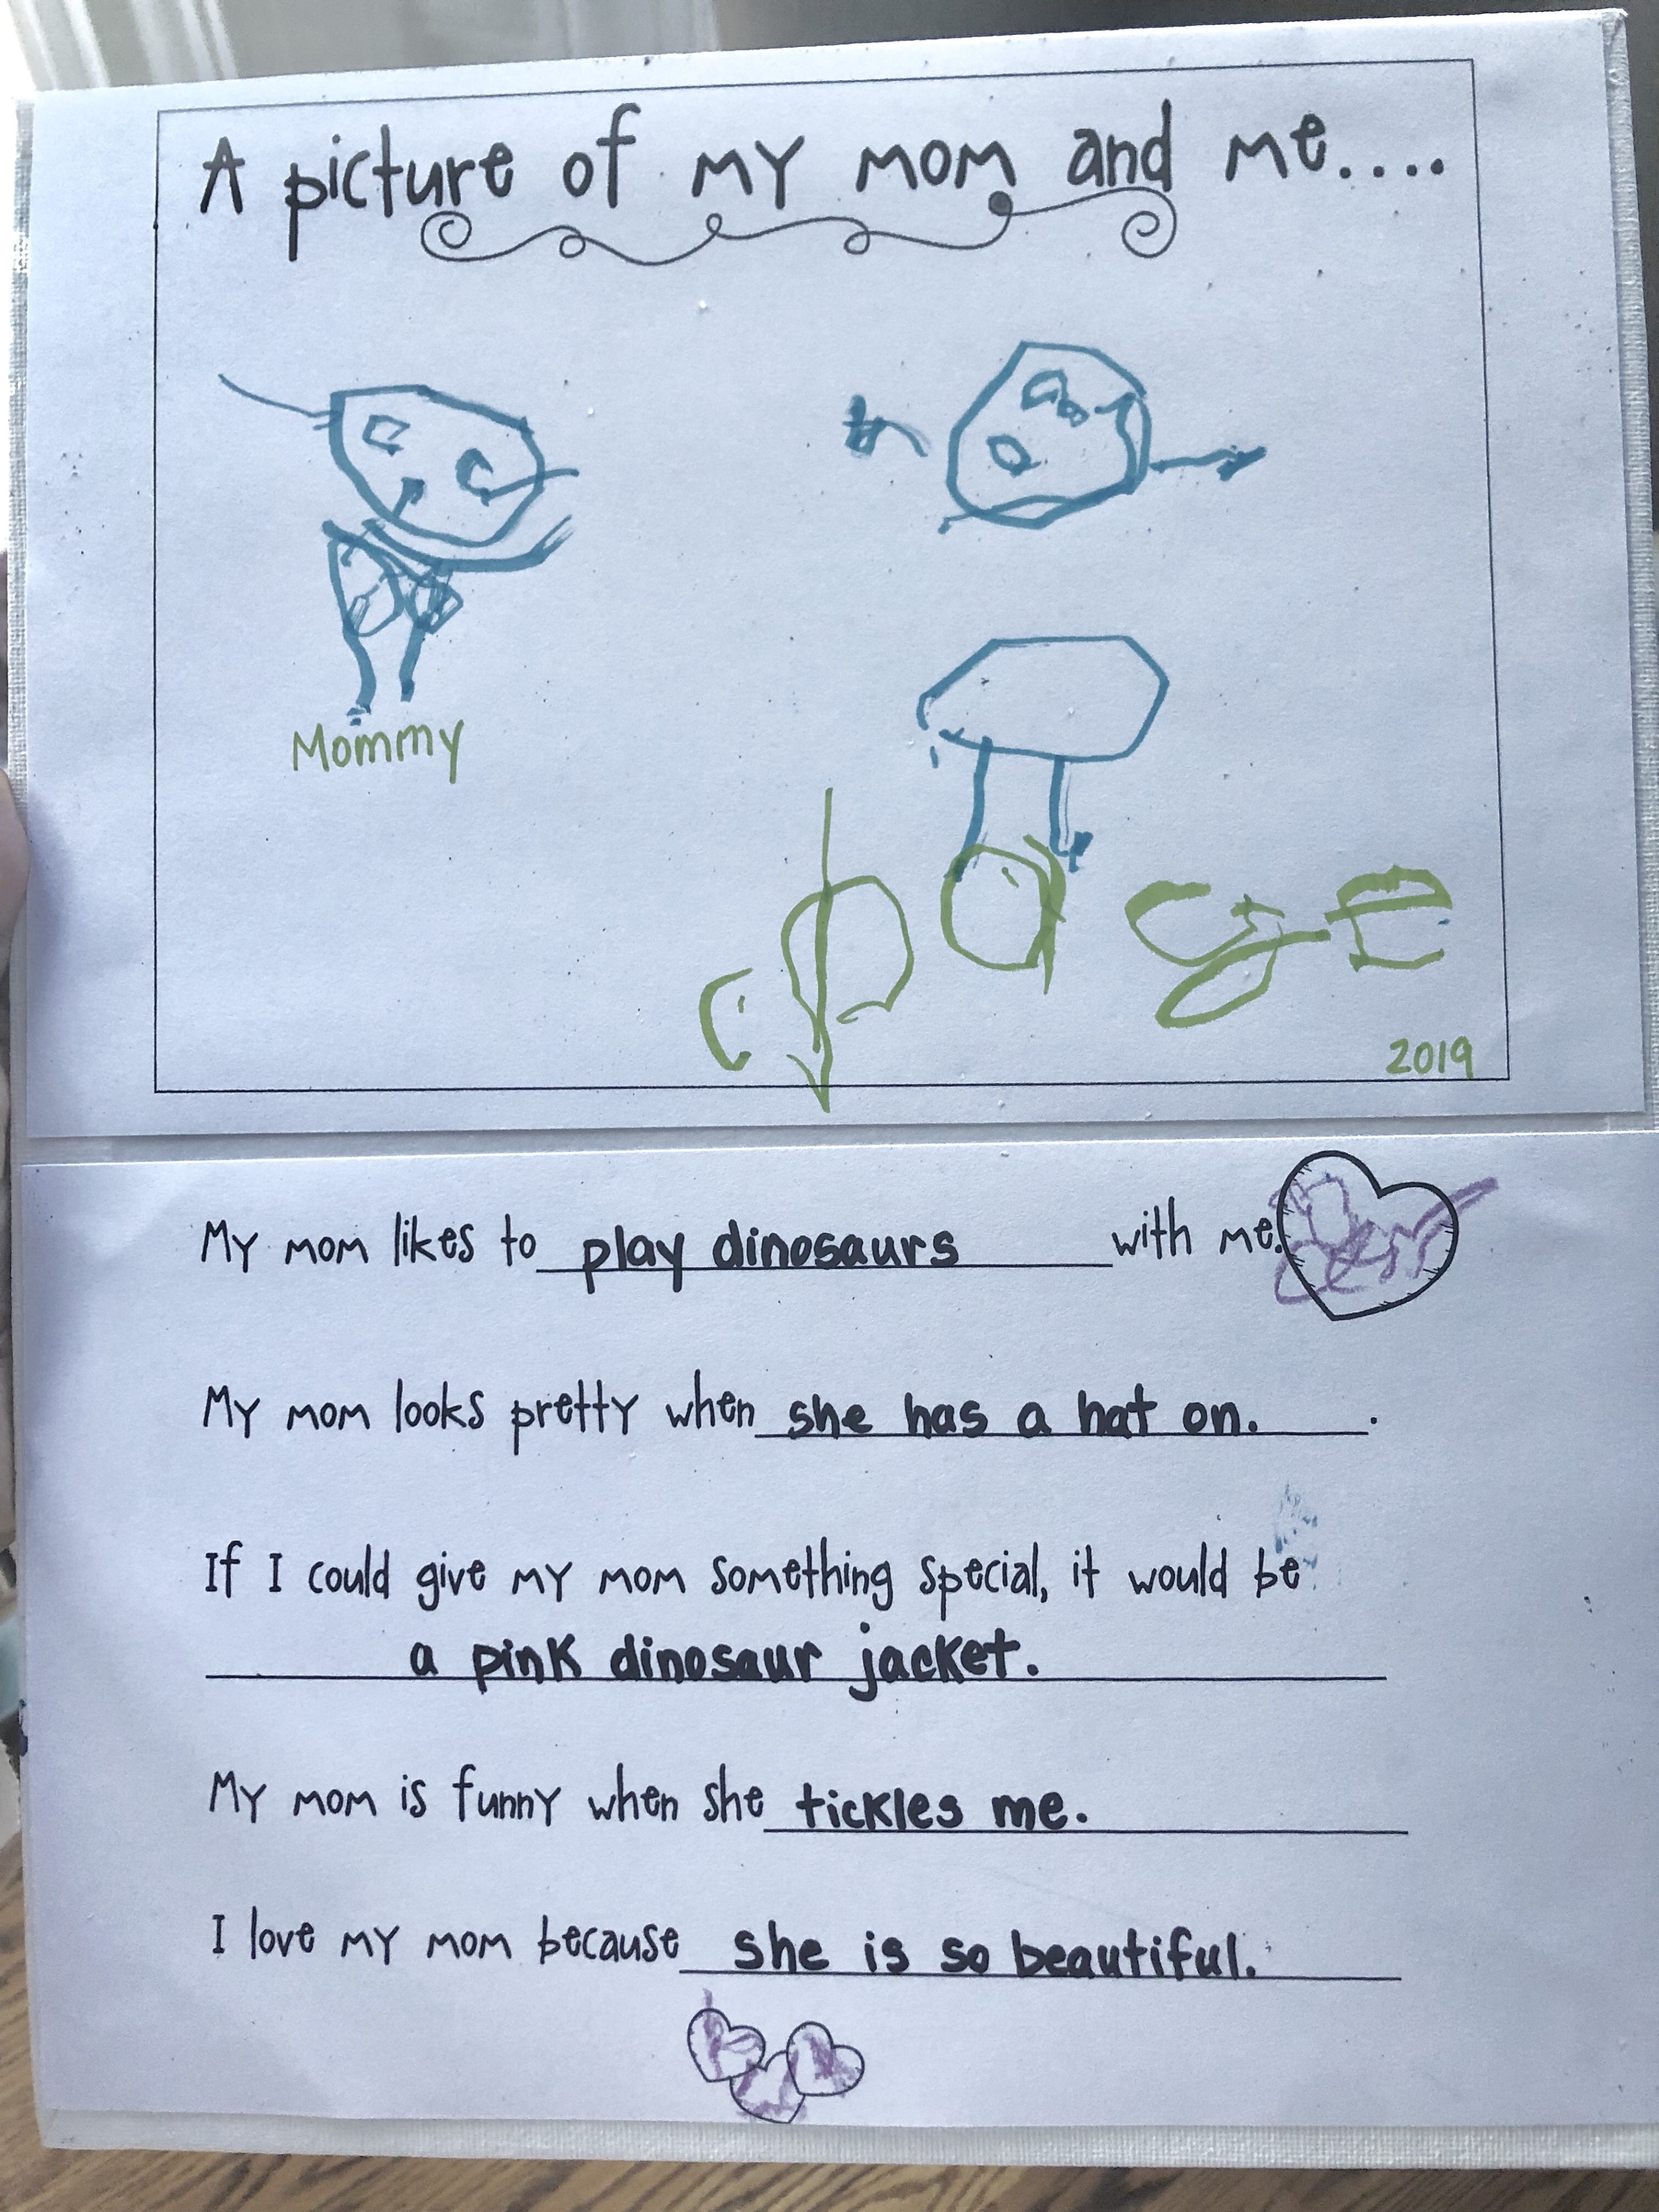 A picture of my mom and me....
Mommy
2019
My mom likes to play dinosaurs with me.
My mom looks pretty when she has a hat on. .
If I could give my mom something special, it would be
a pink dinosaur jacket.
My mom is funny when she tickles me.
I love my mom because she is so beautiful.